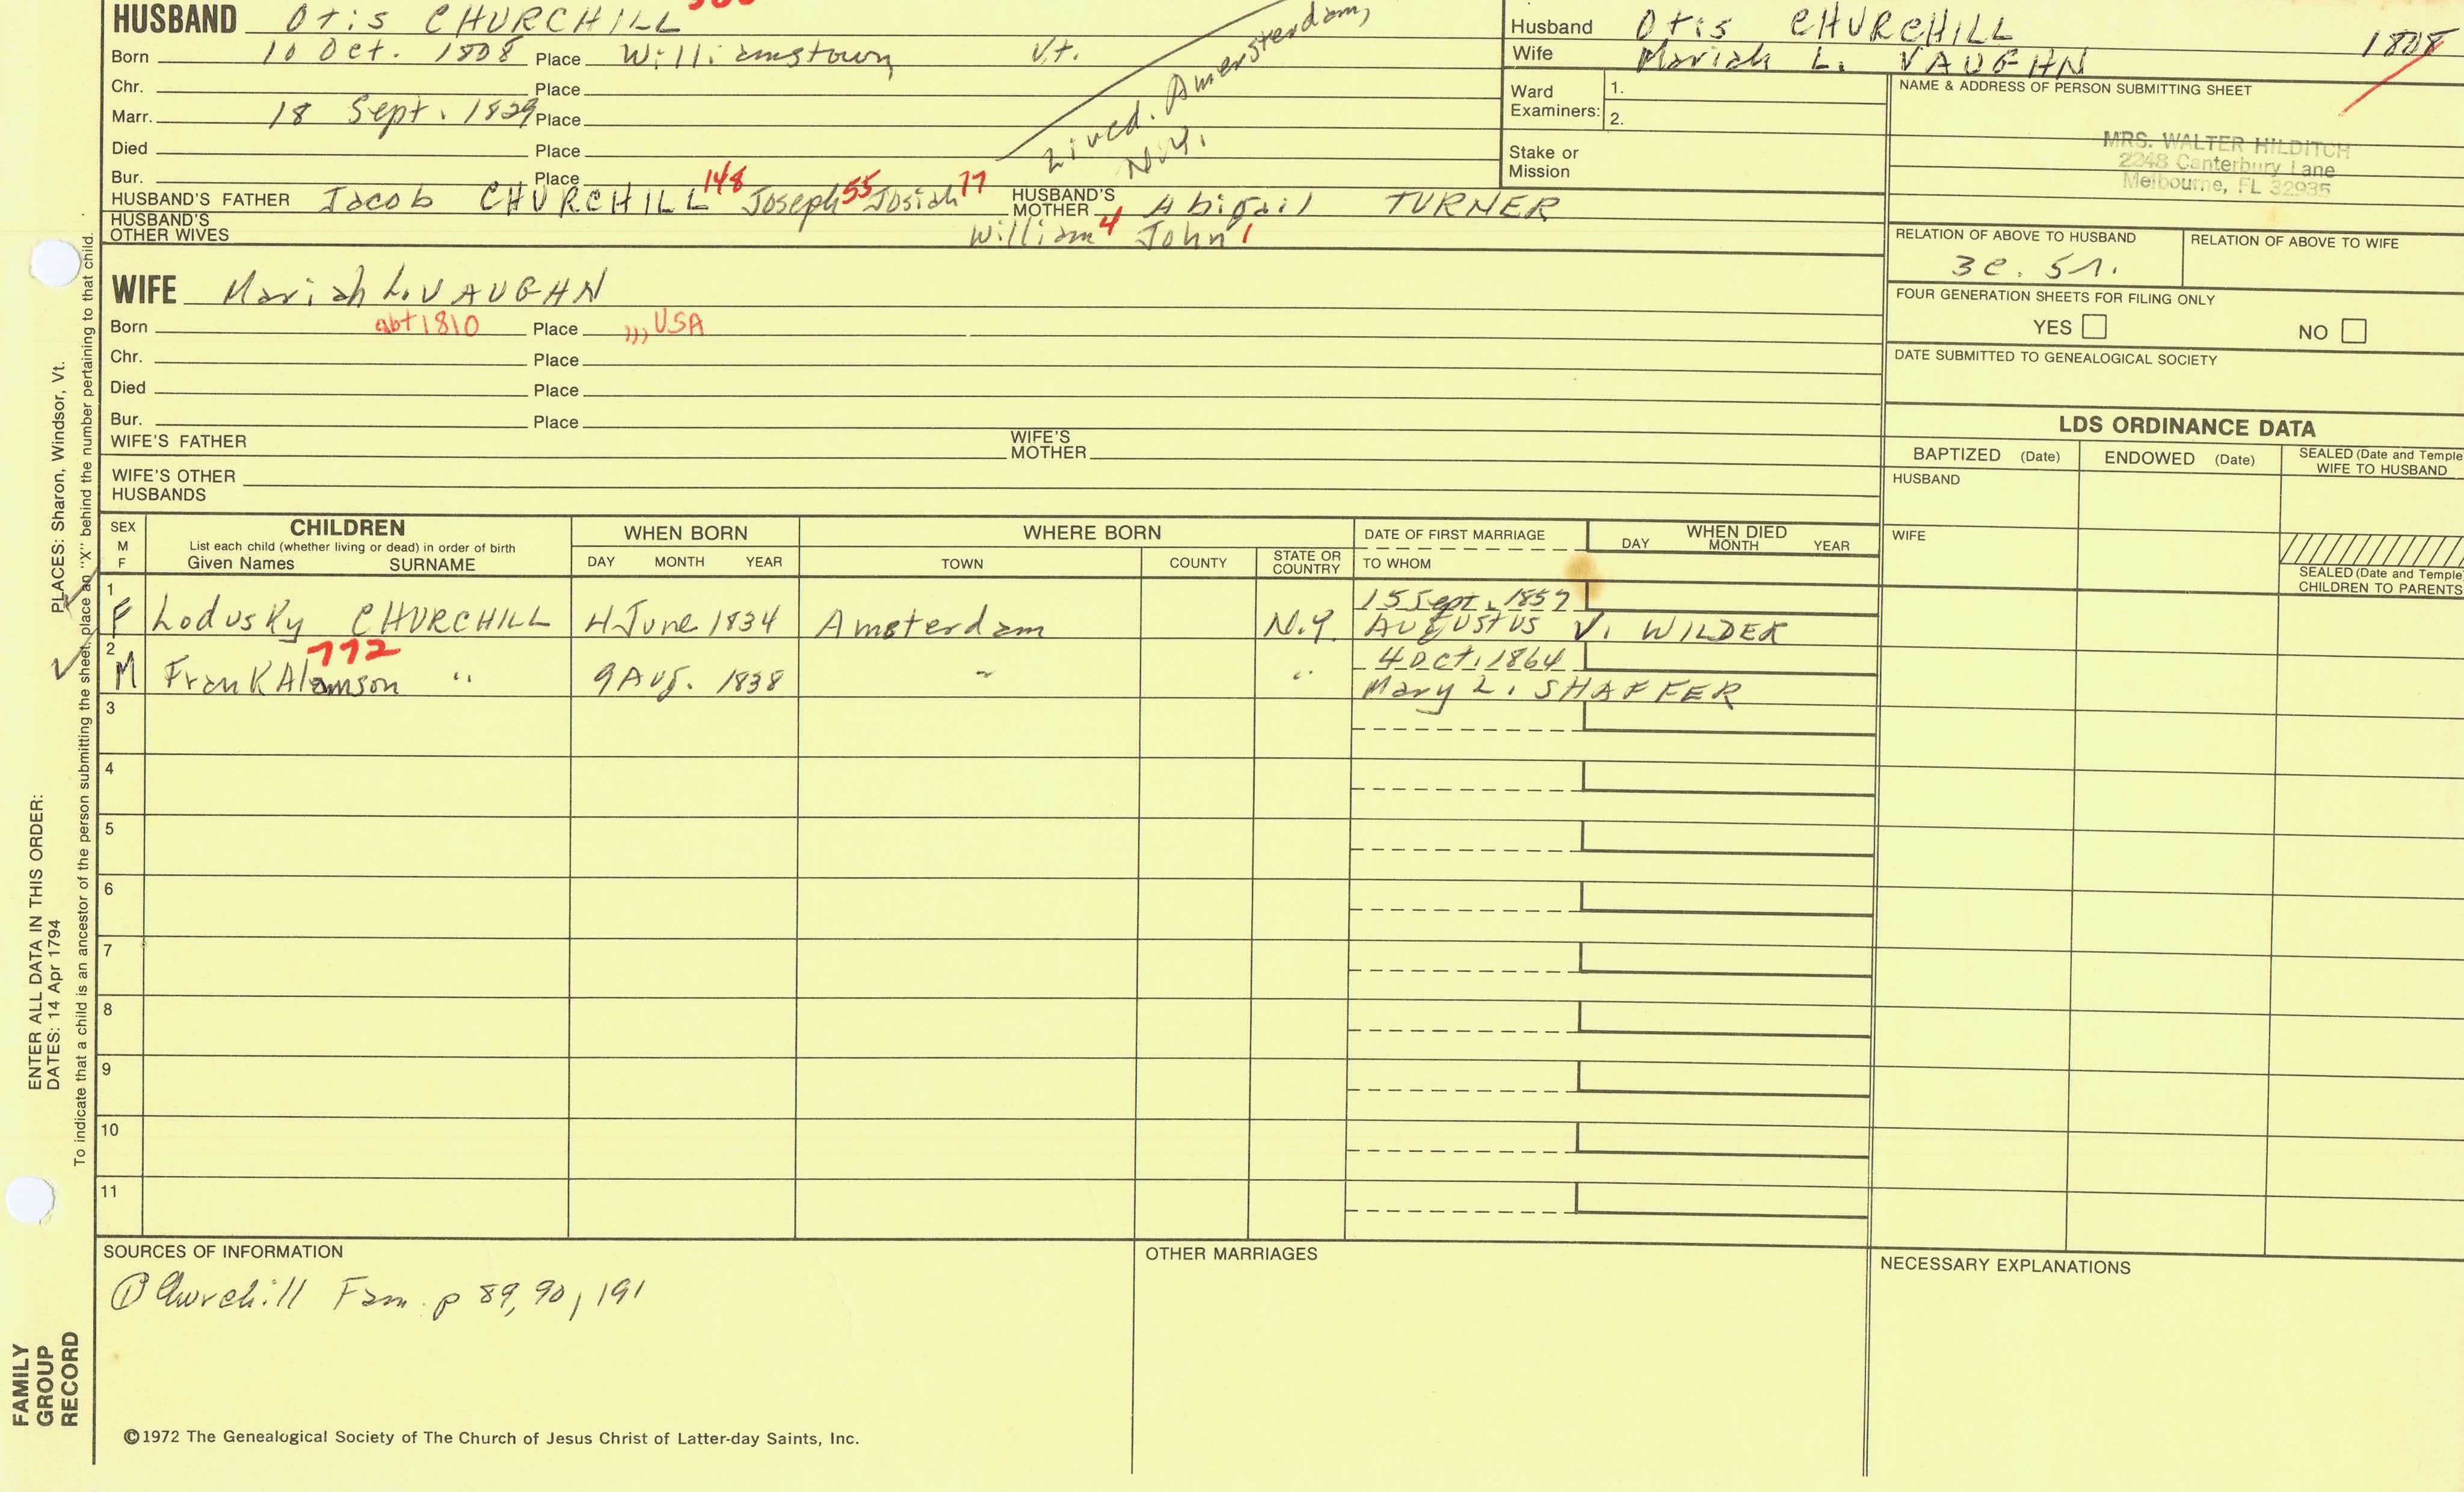 HUSBAND Otis CHURCHILL
Born 10 Oct. 1808 Place Williamstown Vt.
Chr. Place
Marr. 18 Sept. 1829 Place
Died Place
Bur. Place
Lived. Amersterdam,
N.Y.
HUSBAND'S FATHER Jacob CHURCHILL 148 Joseph 55 Josiah 17 HUSBAND'S MOTHER Abigail TURNER
HUSBAND'S OTHER WIVES William 4 John 1
Husband Otis CHURCHILL
Wife Mariah L. VAUGHN
1808
Ward Examiners: 1.
2.
Stake or Mission
NAME & ADDRESS OF PERSON SUBMITTING SHEET
MRS. WALTER HILDITCH
2248 Canterbury Lane
Melbourne, FL 32935
RELATION OF ABOVE TO HUSBAND RELATION OF ABOVE TO WIFE
3c. 5r.
FOUR GENERATION SHEETS FOR FILING ONLY
YES NO
DATE SUBMITTED TO GENEALOGICAL SOCIETY
WIFE Mariah L. VAUGHN
Born abt 1810 Place ,,, USA
Chr. Place
Died Place
Bur. Place
WIFE'S FATHER WIFE'S MOTHER
WIFE'S OTHER HUSBANDS
LDS ORDINANCE DATA
BAPTIZED (Date) ENDOWED (Date) SEALED (Date and Temple
WIFE TO HUSBAND
HUSBAND
WIFE
SEALED (Date and Temple)
CHILDREN TO PARENTS
SEX M F CHILDREN WHEN BORN WHERE BORN DATE OF FIRST MARRIAGE WHEN DIED
List each child (whether living or dead) in order of birth
Given Names SURNAME DAY MONTH YEAR TOWN COUNTY STATE OR COUNTRY TO WHOM DAY MONTH YEAR
1 15 Sept. 1857
F Lodusky CHURCHILL 4 June 1834 Amsterdam N.Y. AUGUSTUS V. WILDER
2 772 4 Oct. 1864
M Frank Alamson " 9 Aug. 1838 " " Mary L. SHAFFER
3
4
5
6
7
8
9
10
11
SOURCES OF INFORMATION OTHER MARRIAGES NECESSARY EXPLANATIONS
① Churchill Fam. p 89, 90, 191
©1972 The Genealogical Society of The Church of Jesus Christ of Latter-day Saints, Inc.
FAMILY
GROUP
RECORD
ENTER ALL DATA IN THIS ORDER:
DATES: 14 Apr 1794 PLACES: Sharon, Windsor, Vt.
To indicate that a child is an ancestor of the person submitting the sheet, place an "X" behind the number pertaining to that child.